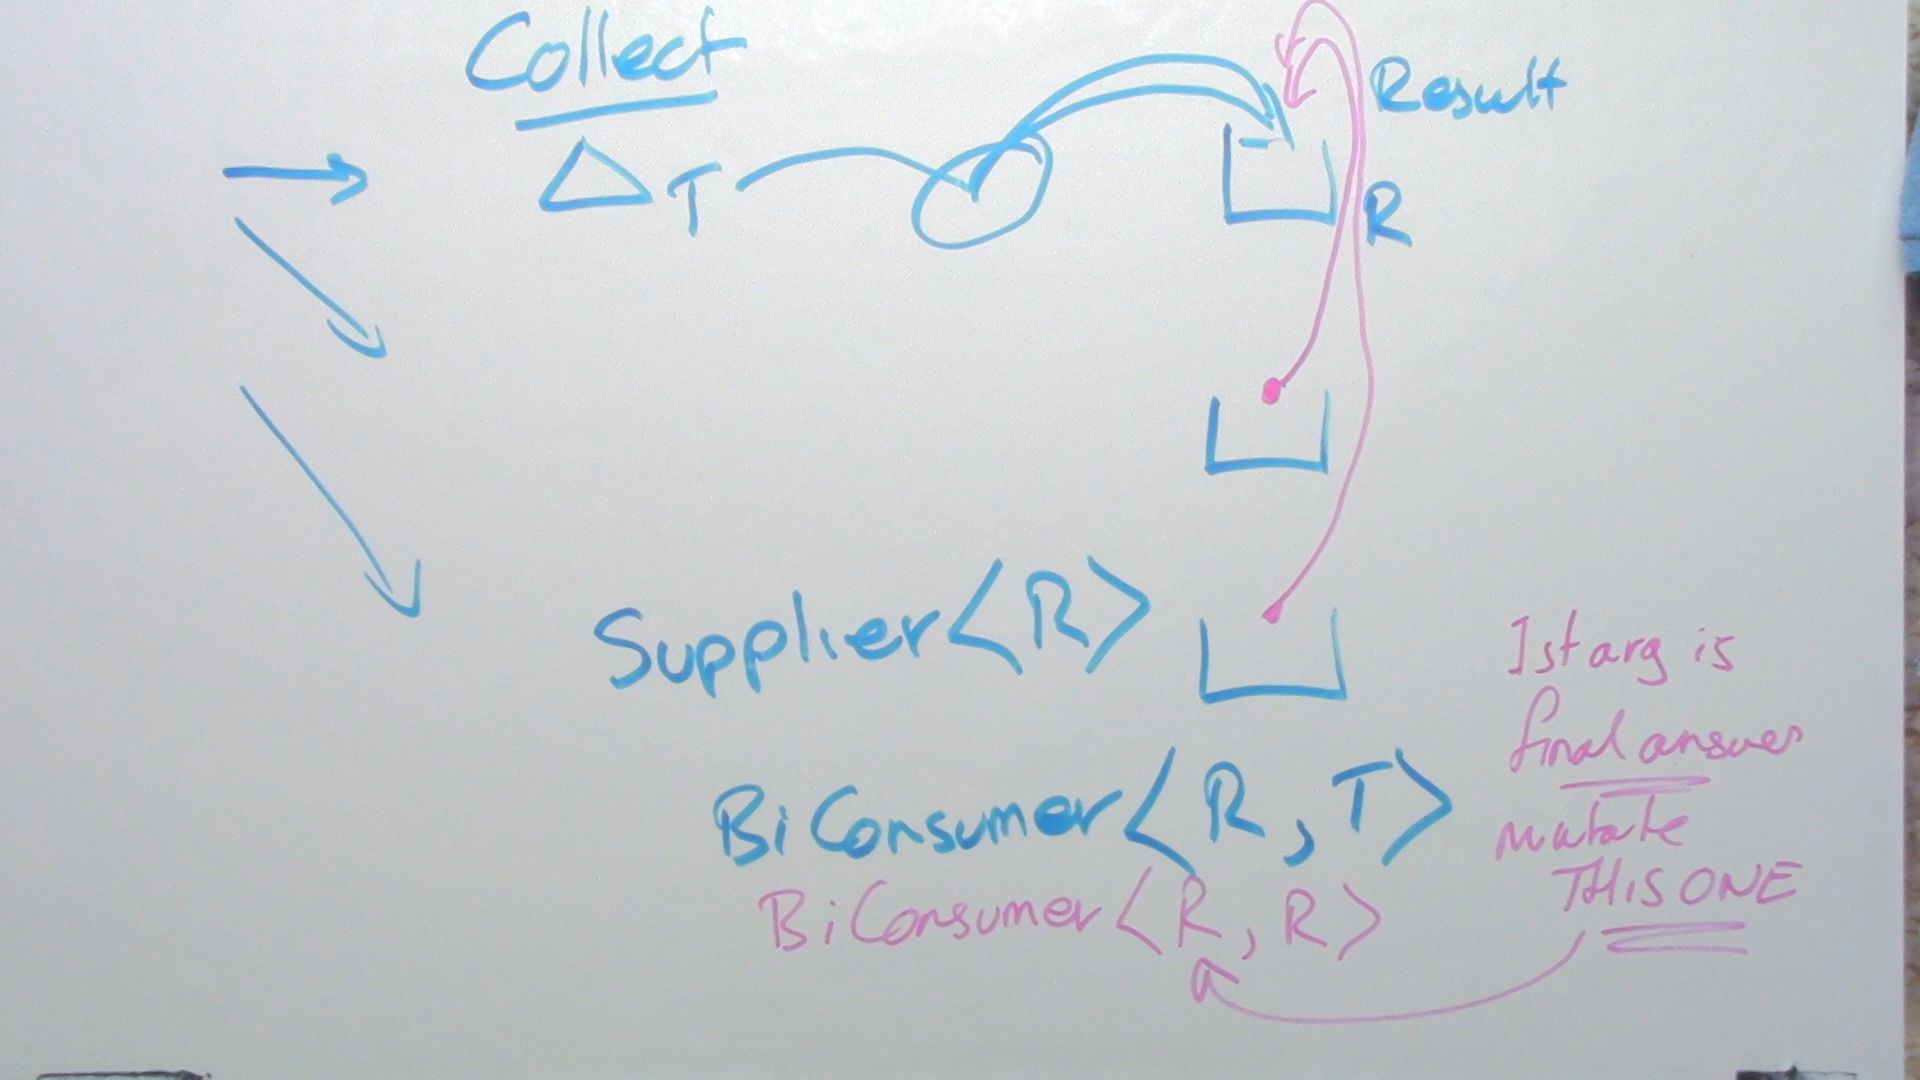 Collect
Result
T
R
Supplier<R>
BiConsumer<R, T>
BiConsumer<R, R>
1st arg is
final answer
mutate
THIS ONE